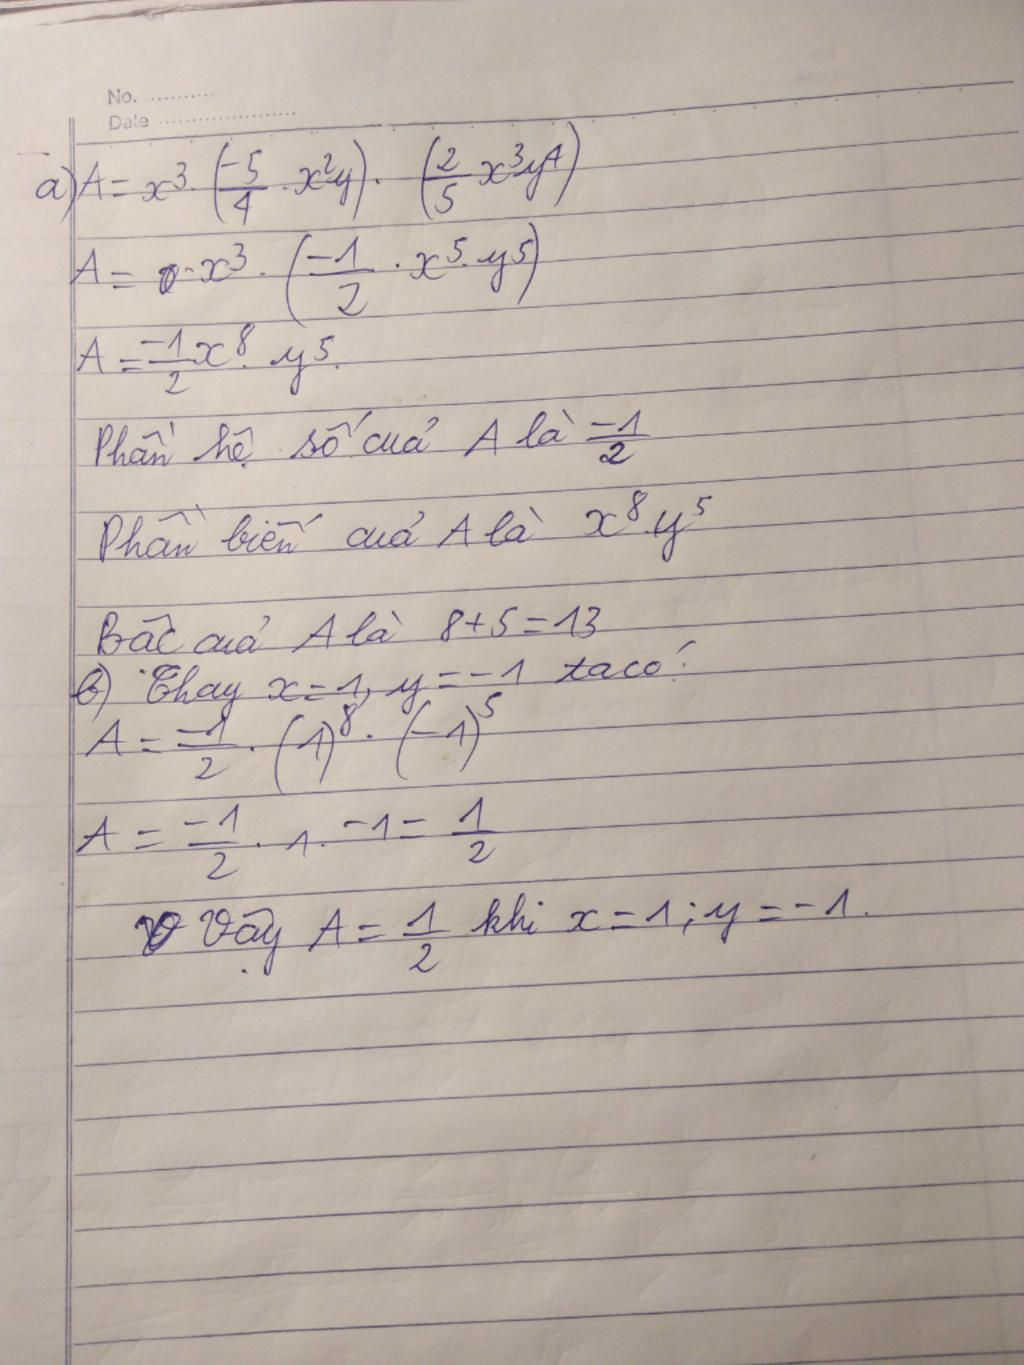 No. ............
Date ........................
a) A = x³ . (-5/4 . x²y) . (2/5 x³y⁴)
A = x³ . (-1/2 . x⁵ . y⁵)
A = -1/2 x⁸ . y⁵.
Phần hệ số của A là -1/2
Phần biến của A là x⁸.y⁵
Bậc của A là 8+5=13
b) Thay x=1, y=-1 ta có:
A = -1/2 . (1)⁸ . (-1)⁵
A = -1/2 . 1 . -1 = 1/2
Vậy A = 1/2 khi x=1; y=-1.